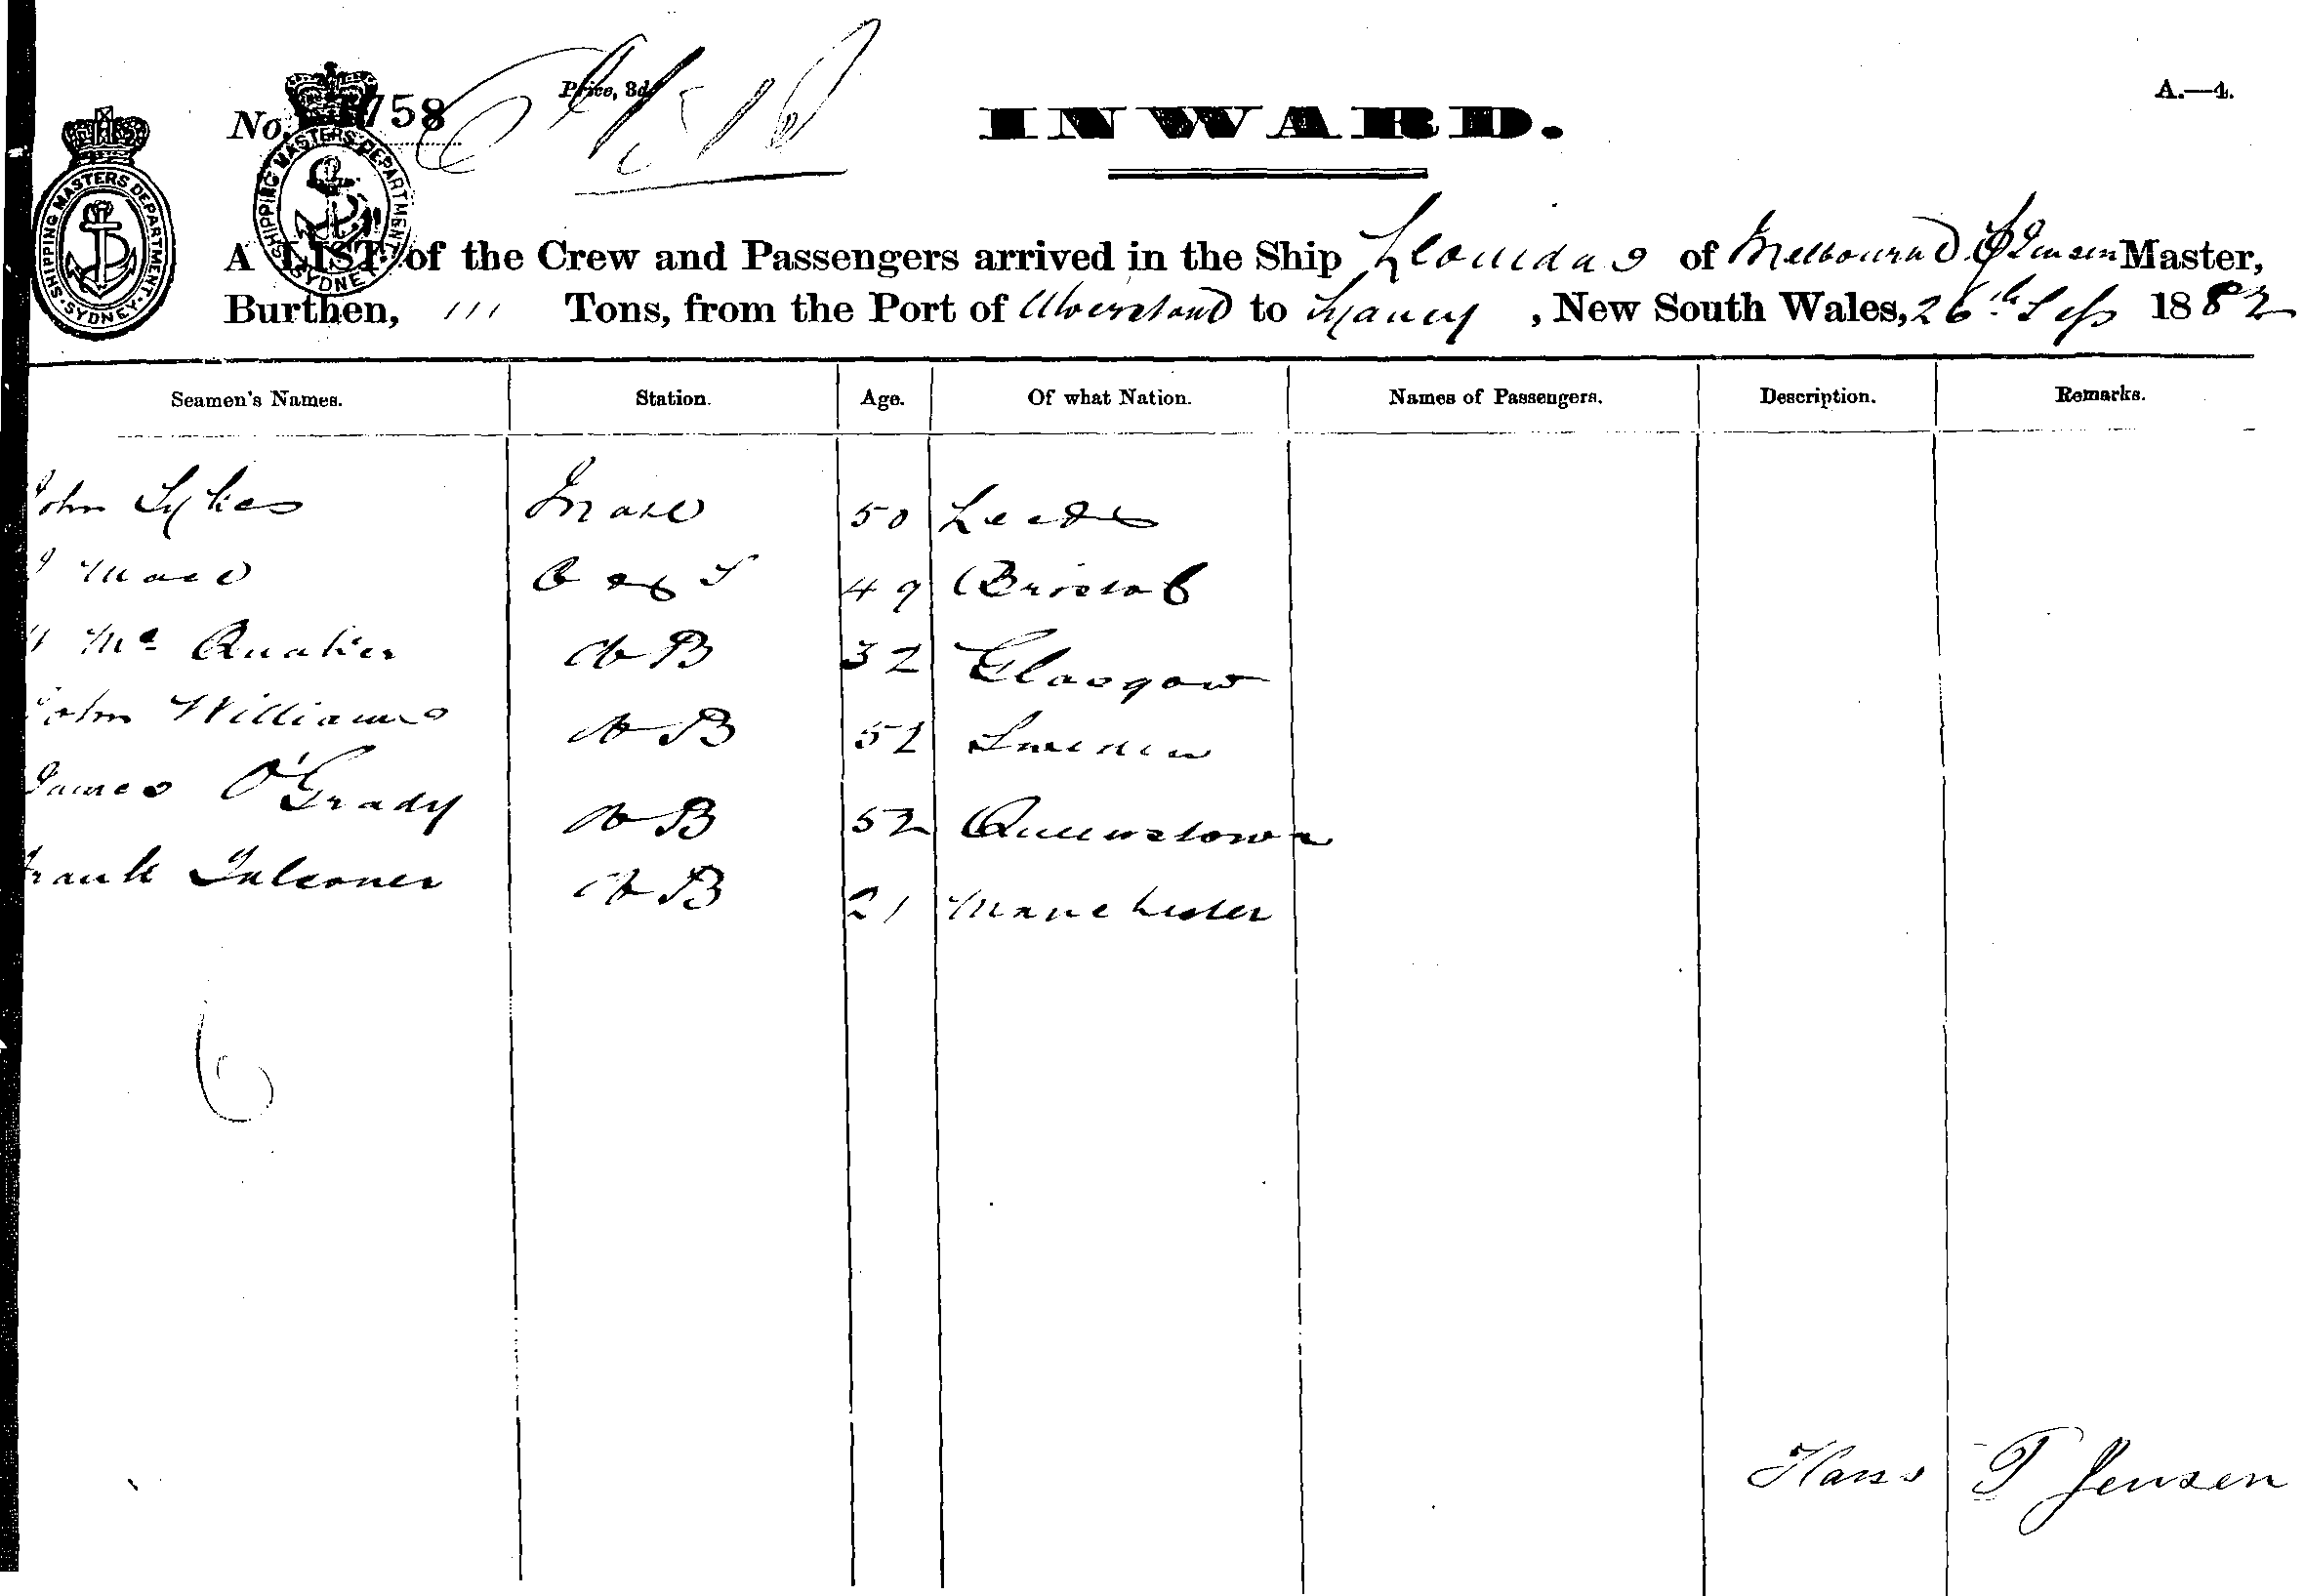 A.—4.
No. 758 Price, 3d.
INWARD.
SHIPPING MASTERS DEPARTMENT · SYDNEY ·
SHIPPING MASTERS DEPARTMENT SYDNEY
A LIST of the Crew and Passengers arrived in the Ship Leonidas of Melbourne Jensen Master,
Burthen, 111 Tons, from the Port of Ulverstone to Sydney, New South Wales, 26th Sep 1882
Seamen's Names. Station. Age. Of what Nation. Names of Passengers. Description. Remarks.
John Sykes Mate 50 Leeds
49 Bristol
Mc Quaker AB 32 Glasgow
John Williams AB 52 Sweden
James O'Grady AB 52 Queenstown
Frank Falconer AB 21 Manchester
6
Hans T Jensen